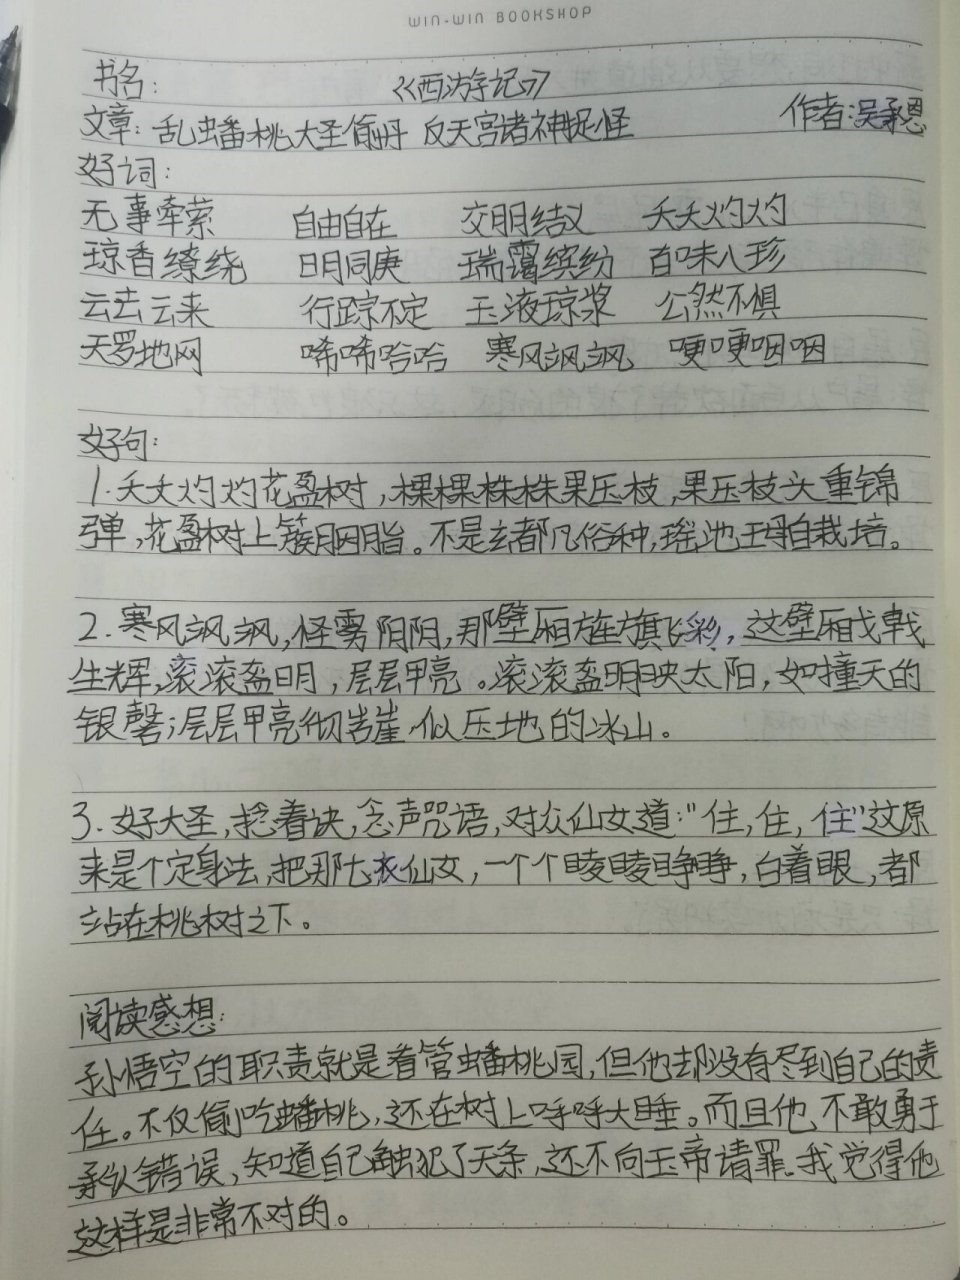 WIN-WIN BOOKSHOP
书名: 《西游记》
文章: 乱蟠桃大圣偷丹 反天宫诸神捉怪 作者:吴承恩
好词:
无事牵萦 自由自在 交朋结义 夭夭灼灼
琼香缭绕 日月同庚 瑞霭缤纷 百味八珍
云去云来 行踪不定 玉液琼浆 公然不惧
天罗地网 唏唏哈哈 寒风飒飒 哽哽咽咽
好句:
1.夭夭灼灼花盈树,棵棵株株果压枝,果压枝头重锦
弹,花盈树上簇胭脂。不是玄都凡俗种,瑶池王母自栽培。
2.寒风飒飒,怪雾阴阴,那壁厢旌旗飞彩,这壁厢戈戟
生辉,滚滚盔明,层层甲亮。滚滚盔明映太阳,如撞天的
银磬;层层甲亮彻岩崖,似压地的冰山。
3.好大圣,捻着诀,念声咒语,对众仙女道:"住,住,住"这原
来是个定身法,把那七衣仙女,一个个睖睖睁睁,白着眼,都
站在桃树之下。
阅读感想:
孙悟空的职责就是看管蟠桃园,但他却没有尽到自己的责
任。不仅偷吃蟠桃,还在树上呼呼大睡。而且他不敢勇于
承认错误,知道自己触犯了天条,还不向玉帝请罪.我觉得他
这样是非常不对的。